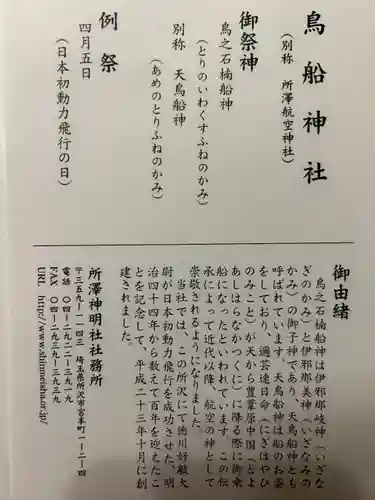 鳥船神社
（別称　所澤航空神社）
御祭神
鳥之石楠船神
（とりのいわくすふねのかみ）
別称　天鳥船神
（あめのとりふねのかみ）
例祭
四月五日
（日本初動力飛行の日）
御由緒
鳥之石楠船神は伊邪那岐神（いざな
ぎのかみ）と伊邪那美神（いざなみの
かみ）の御子神であり、天鳥船神とも
呼ばれています。天鳥船神は船のお姿
をしており、邇芸速日命（にぎはやひ
のみこと）が天から豊葦原中国（とよ
あしはらなかつくに）に降る際に御乗
船になったといわれています。この伝
承によって近代以降、航空の神として
崇敬されるようになりました。
当社では、この所沢にて徳川好敏大
尉が日本初動力飛行を成功させた、明
治四十四年から数えて百年を迎えたこ
とを記念して、平成二十三年十月に創
建されました。
所澤神明社社務所
〒三五九ー一一四三　埼玉県所沢市宮本町一ー二ー四
電話　〇四ー二九二二ー三九一九
FAX　〇四ー二九二八ー三九三九
URL　http://www.shinmeisha.or.jp/